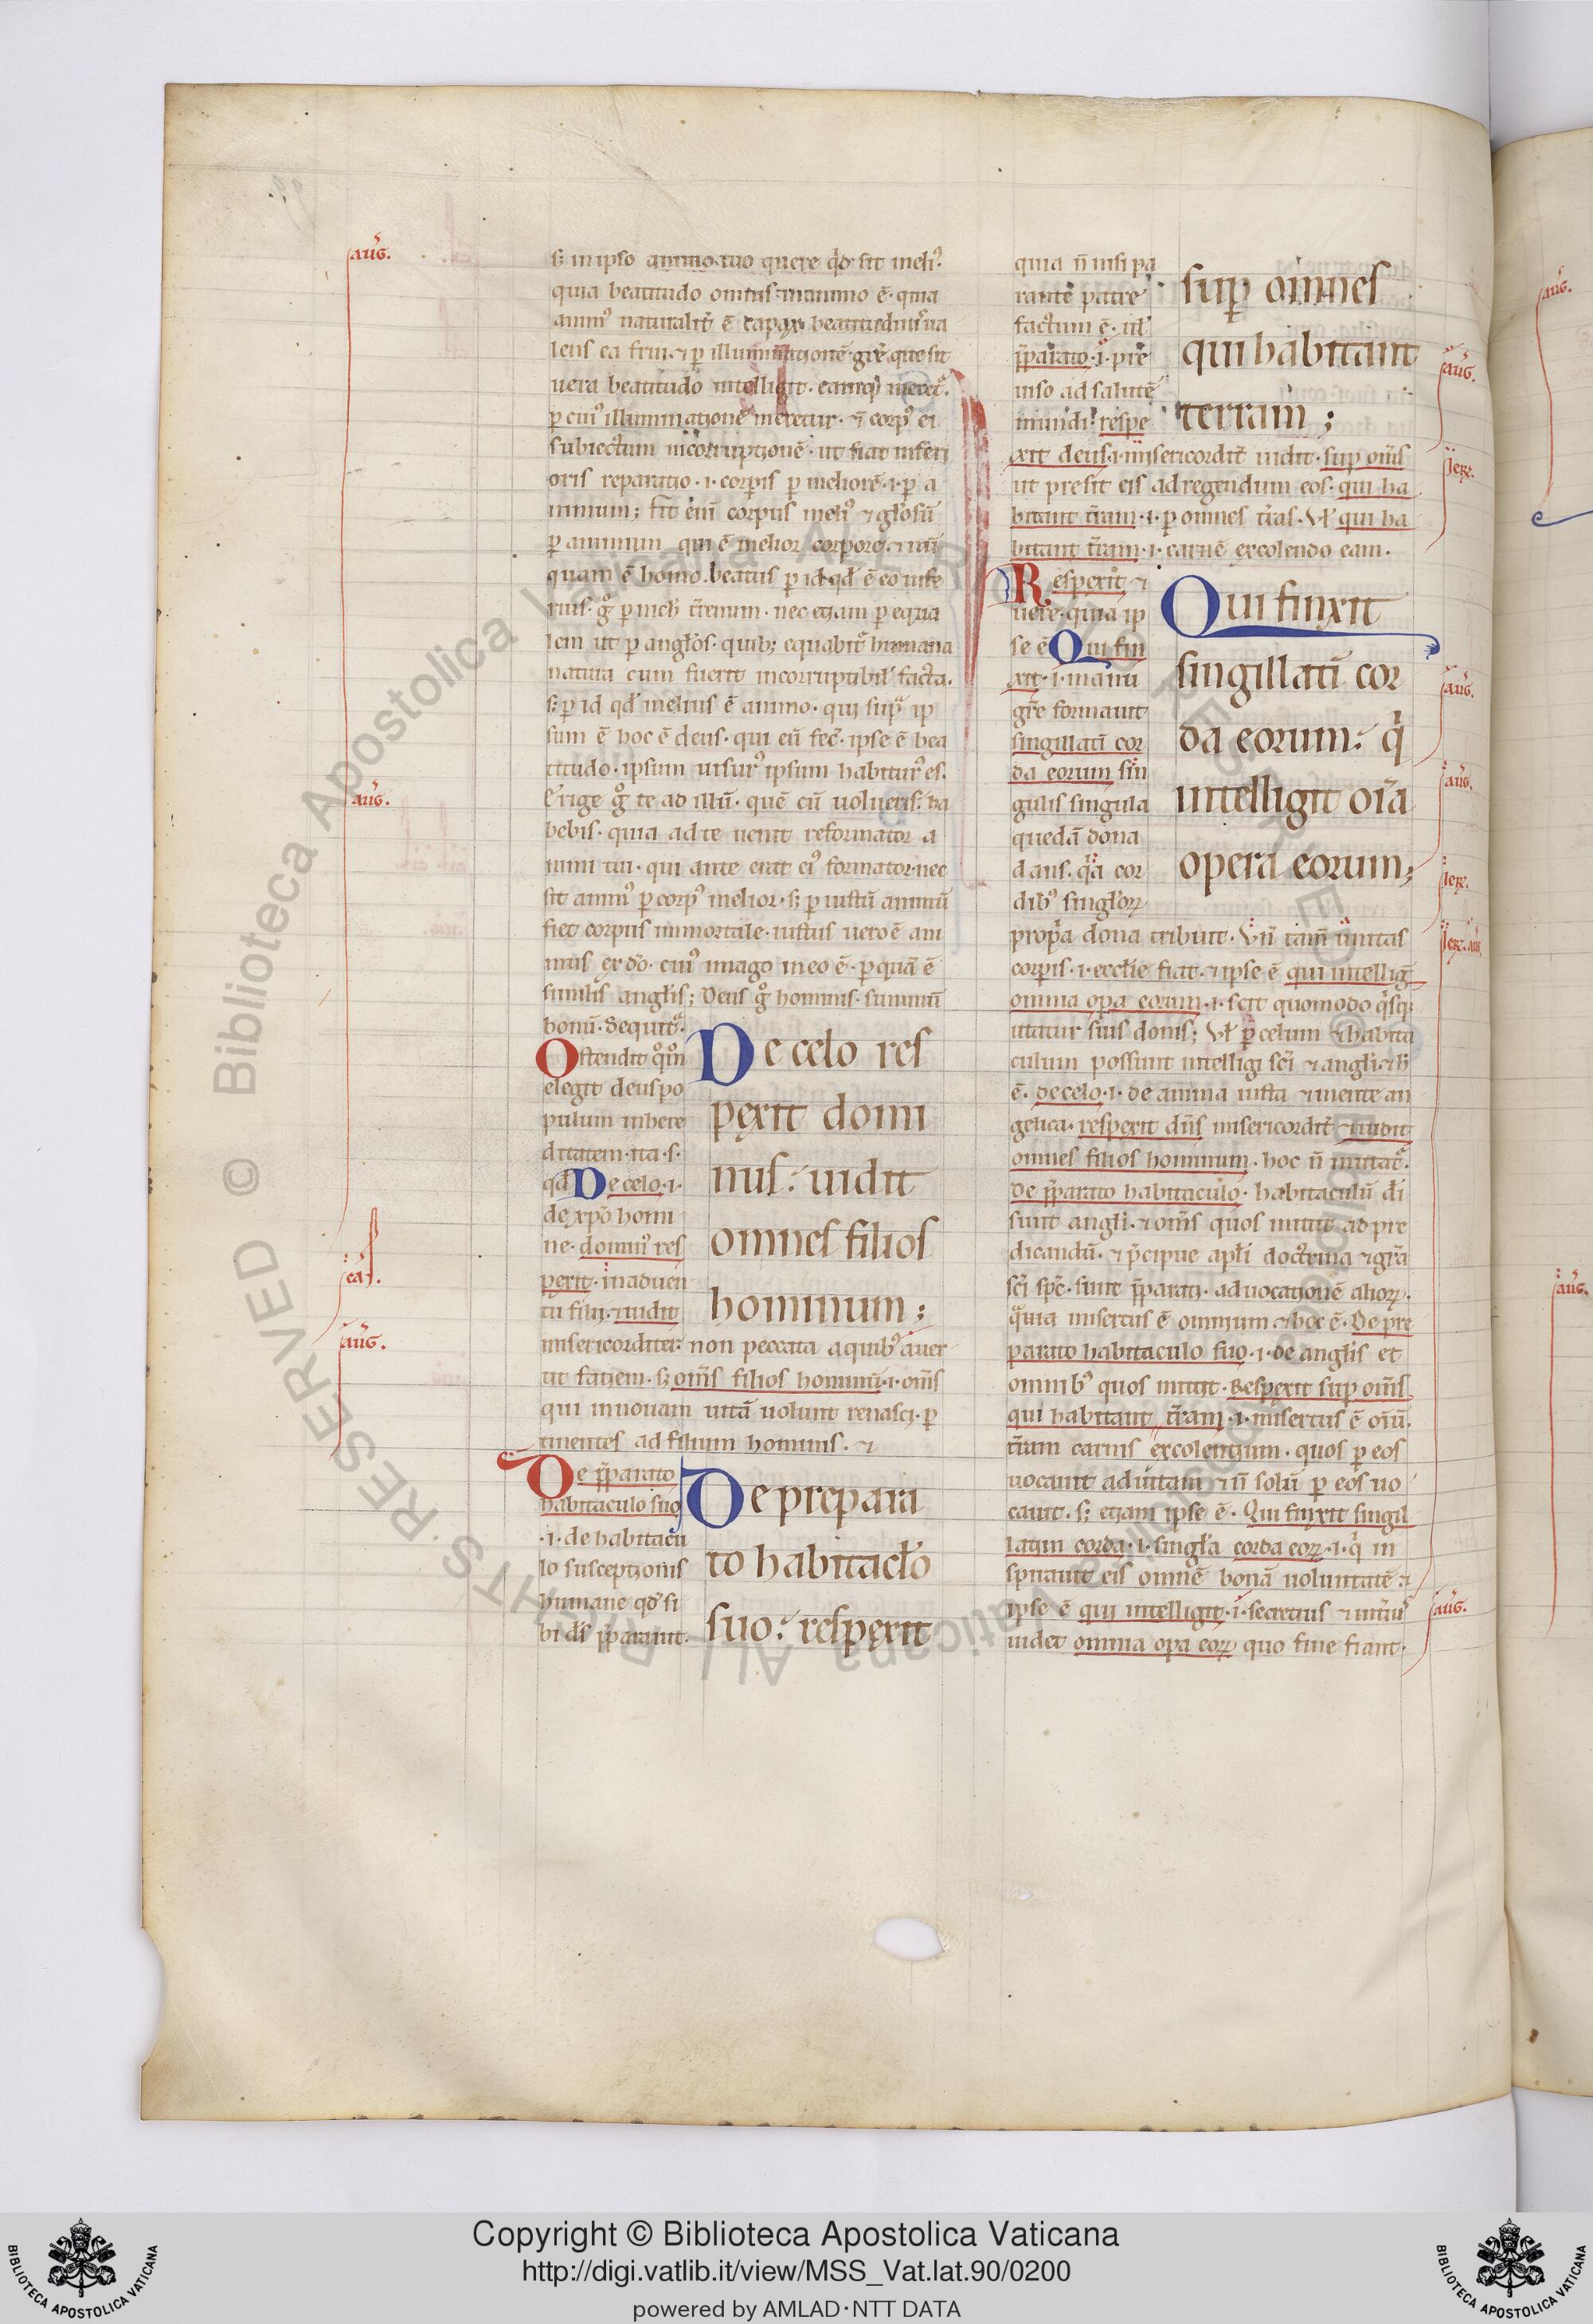 aug̃.
s; in ipso animo tuo quere qd̓ sit meli᷒.
quia beatitudo omnis in animo ē. quia
anim᷒ naturalit᷑ ē capax beatitudinis ua
lens ea frui. ⁊ ꝑ illuminationē gr̄e que sit
uera beatitudo intelligit. eamq; meret᷑.
ꝑ cui᷒ illuminationē meretur. ⁊ corp᷒ ei
subiectum incorruptionē. ut fiat inferi
oris reparatio .i. corporis ꝑ meliorē .i. ꝑ a
nimum; fit eni᷑ corpus meli᷒ ⁊ gl̓osū
ꝑ animum qui ē melior corpore. ⁊ nū
quam ē homo beatus ꝑ id qd̓ ē eo infe
rius. gͦ ꝑ nich̓ t̓renum. nec etiam ꝑ equa
lem ut ꝑ angl̓os. quib; equabit᷑ humana
natura cum fuerit incorruptibil̓ facta.
s; ꝑ id qd̓ melius ē animo. qui supͣ ip
sum ē hoc ē deus. qui eū fec̓. ipse ē bea
titudo. ipsum uisur᷒ ipsum habitur᷒ es.
aug̃.
Erige gͦ te ad illū. quē cū uolueris: ha
bebis. quia ad te uenit reformator a
nimi tui. qui ante erat ei᷒ formator. nec
fit anim᷒ ꝑ corp᷒ melior. s; ꝑ iustū animū
fiet corpus immortale. iustus uero ē ani
mus ex dō. cui᷒ imago in eo ē. ꝑ quā ē
similis angl̓is; Deus gͦ hominis summū
bonū. Sequit᷑.
Ostendit qͦm̄
elegit deus po
pulum in here
ditatem. ita .s.
qd̓ De celo .i.
de xp̄o homi
ne. domin᷒ res
cas̃.
pexit. in aduen
tu filii. ⁊ uidit
aug̃.
misericorditer: non peccata a quib᷒ auer
tit faciem. s; om̄s filios hominū .i. om̄s
qui in nouam uitā uolunt renasci. ꝑ
tinentes ad filium hominis. ⁊
De celo res
pexit domi
nus: uidit
omnes filios
hominum;
De p̄parato
habitaculo suo
.i. de habitacu
lo susceptionis
humane qd̓ si
bi d̓s p̄parauit.
De prepara
to habitacl̓o
suo: respexit
quia n̄ nisi pa
rante patre
factum ē. ul̓
p̄parato .i. pre
uiso ad salutē
mundi. respe
xit deus .i. misericordit᷑ uidit. sup om̄s
ut presit eis ad regendum eos. qui ha
bitant t̓ram .i. ꝑ omnes t̓ras. Vl̓ qui ha
bitant t̓ram .i. carnē excolendo eam.
sup omnes
qui habitant
terram;
aug̃.
Ier̃.
Respexit ⁊
uere. quia ip
se ē Qui fin
xit .i. manu
gr̄e formauit
singillati᷑ cor
da eorum sin̄
gulis singula
quedā dona
dans. qͣa cor
dib᷒ singl̓oꝝ
Qui finxit
singillati᷑ cor
da eorum: qͥ
intelligit om̄a
opera eorum;
aug̃.
aug̃.
Ier̃.
Ier̃. aug̃.
propͥa dona tribuit. Vn̄ tam̄ unitas
corpis .i. eccl̓ie fiat. ⁊ ipse ē qui intelligit
omnia opa eorum .i. scit quomodo qͥsq;
utatur suis donis; Vl̓ ꝑ celum ⁊ habita
culum possunt intelligi sc̄i ⁊ angl̓i. ⁊ h̓
ē. De celo .i. de anima iusta ⁊ mente an
gelica. respexit dn̄s misericordit᷑ ⁊ uidit
omnes filios hominum. hoc n̄ mutat᷑.
De p̄parato habitaculo. habitaculū d̓i
sunt angl̓i. ⁊ om̄s quos mittit ad pre
dicandū. ⁊ pͥcipue apl̓i doctrina ⁊ gr̄a
sc̄i sp̄c. sunt p̄parati. ad uocationē alioꝝ.
qͣuia misertus ē omnium ⁊ hoc ē. De pre
parato habitaculo suo .i. de angl̓is et
omnib᷒ quos mittit. Respexit sup om̄s
qui habitant t̓ram .i. misertus ē oi᷑ū.
t̓ram carnis excolentium. quos ꝑ eos
uocauit ad uitam ⁊ n̄ solū ꝑ eos uo
cauit. s; etiam ipse ē. Qui finxit singil
latim corda .i. singl̓a corda eoꝝ .i. qͥ in
spirauit eis omnē bonā uoluntatē ⁊
ipse ē qui intelligit .i. secretius ⁊ interi᷒
uidet omnia opa eoꝝ quo fine fiant.
aug̃.
aug̃.
aug̃.
Copyright © Biblioteca Apostolica Vaticana
http://digi.vatlib.it/view/MSS_Vat.lat.90/0200
powered by AMLAD·NTT DATA
BIBLIOTECA APOSTOLICA VATICANA
BIBLIOTECA APOSTOLICA VATICANA